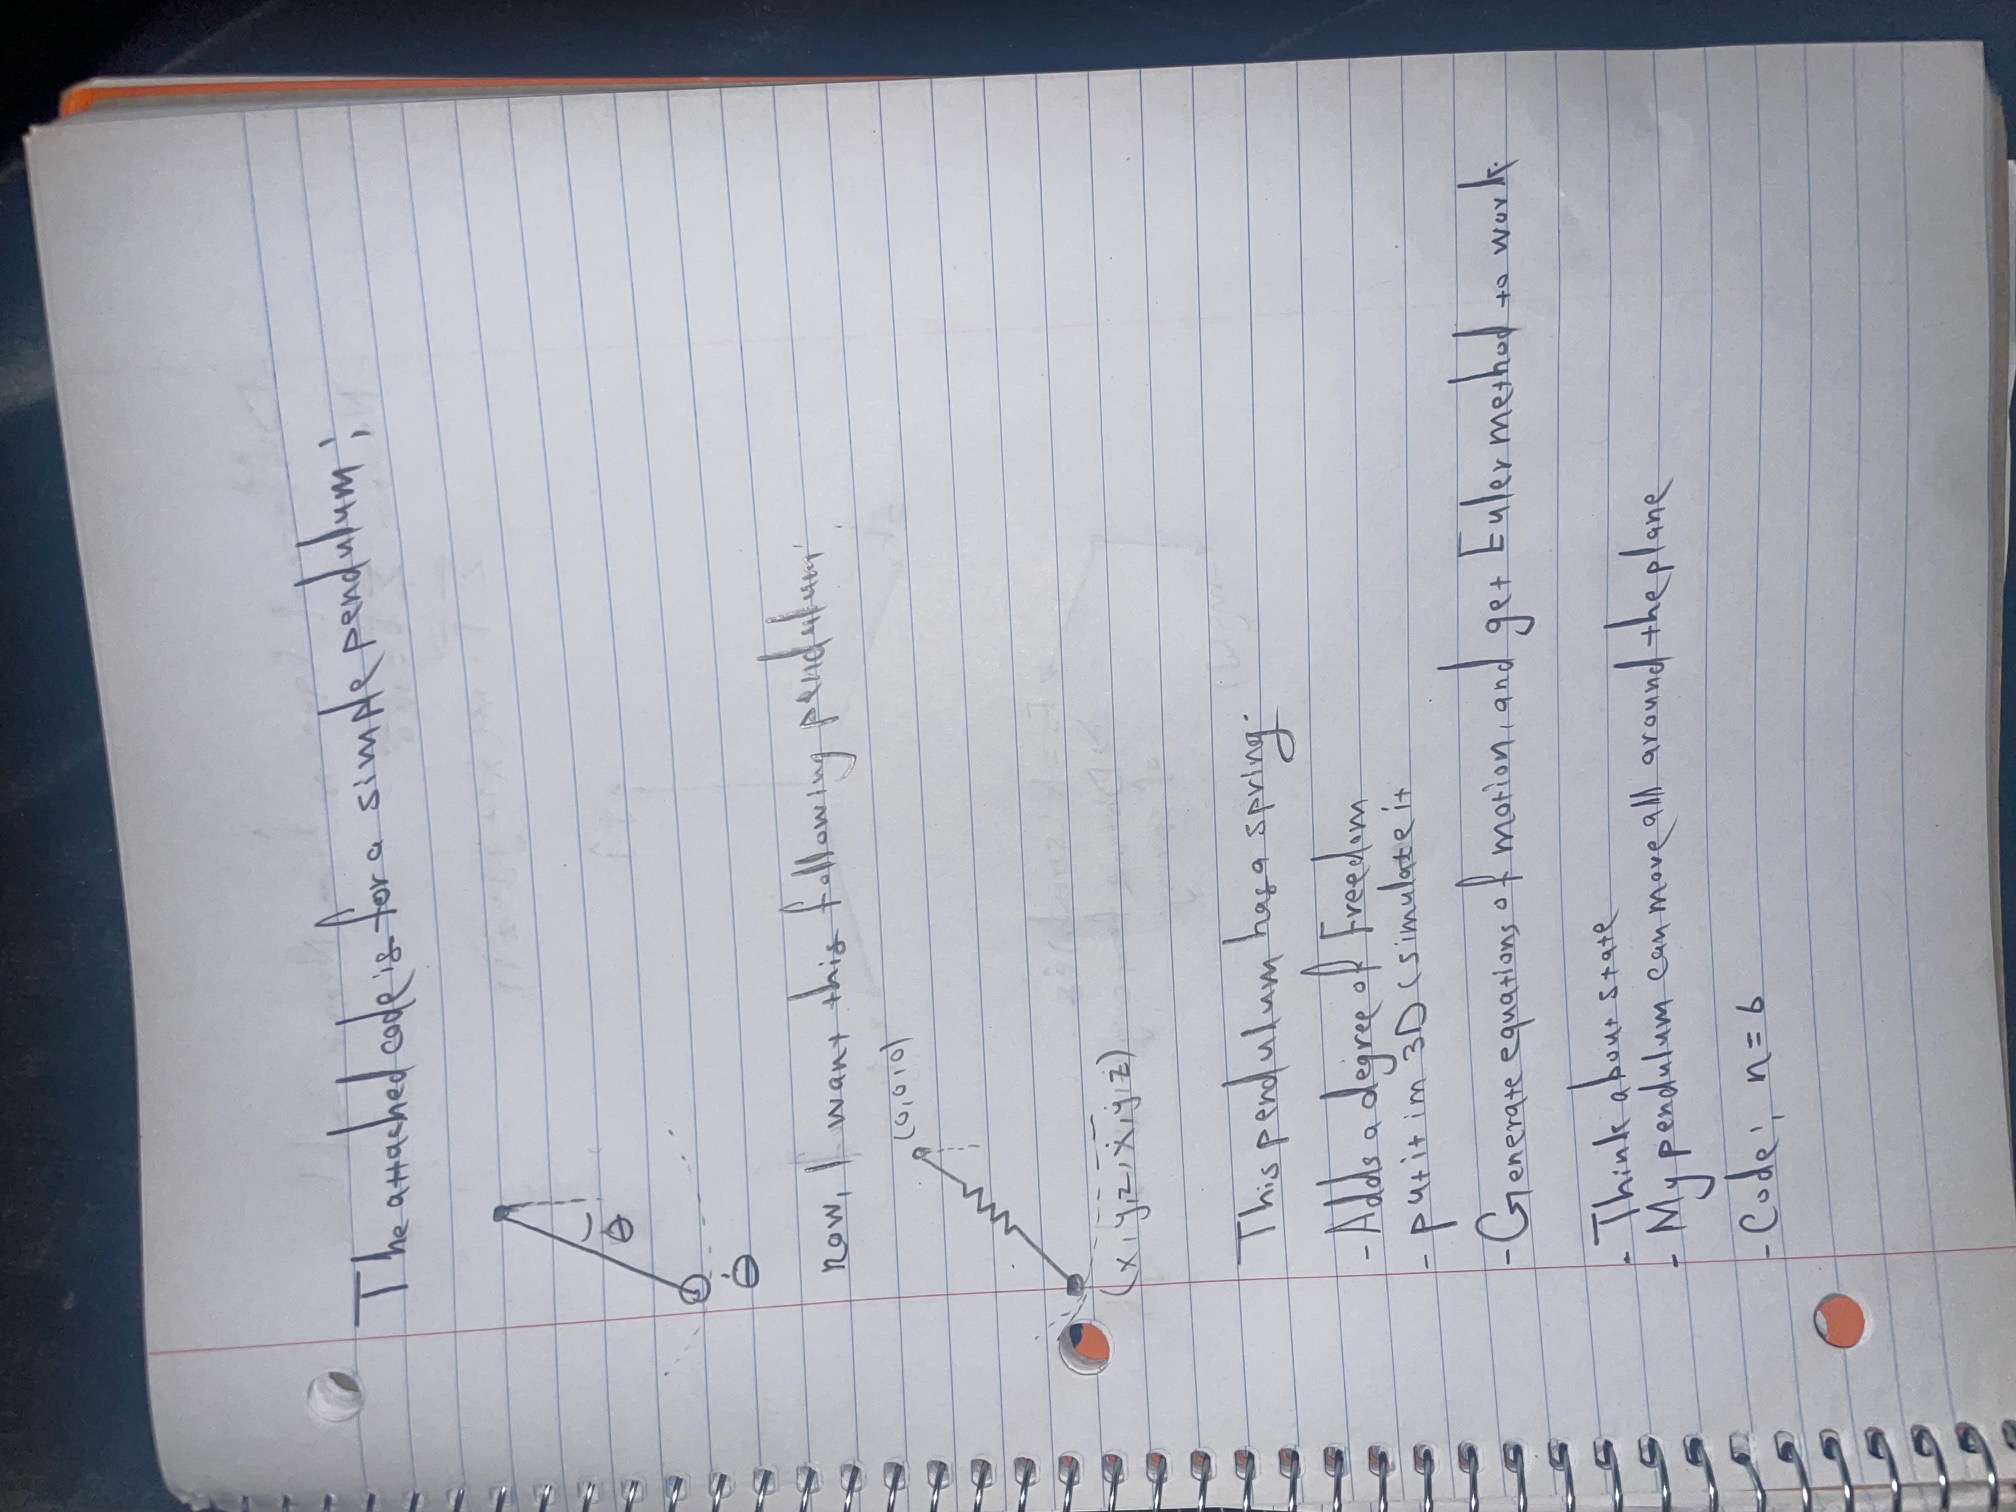 The attached code is for a simple pendulum;
θ
θ̇
now, I want this following pendulum;
(0,0,0)
(x,y,z,ẋ,ẏ,ż)
This pendulum has a spring.
- Adds a degree of freedom
- put it in 3D (simulate it
- Generate equations of motion, and get Euler method to work.
- Think about state
- My pendulum can move all around the plane
- Code; n=6